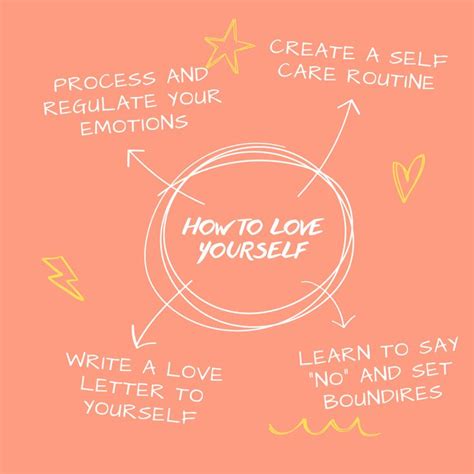 PROCESS AND
REGULATE YOUR
EMOTIONS
CREATE A SELF
CARE ROUTINE
HOW TO LOVE
YOURSELF
WRITE A LOVE
LETTER TO
YOURSELF
LEARN TO SAY
"NO" AND SET
BOUNDIRES